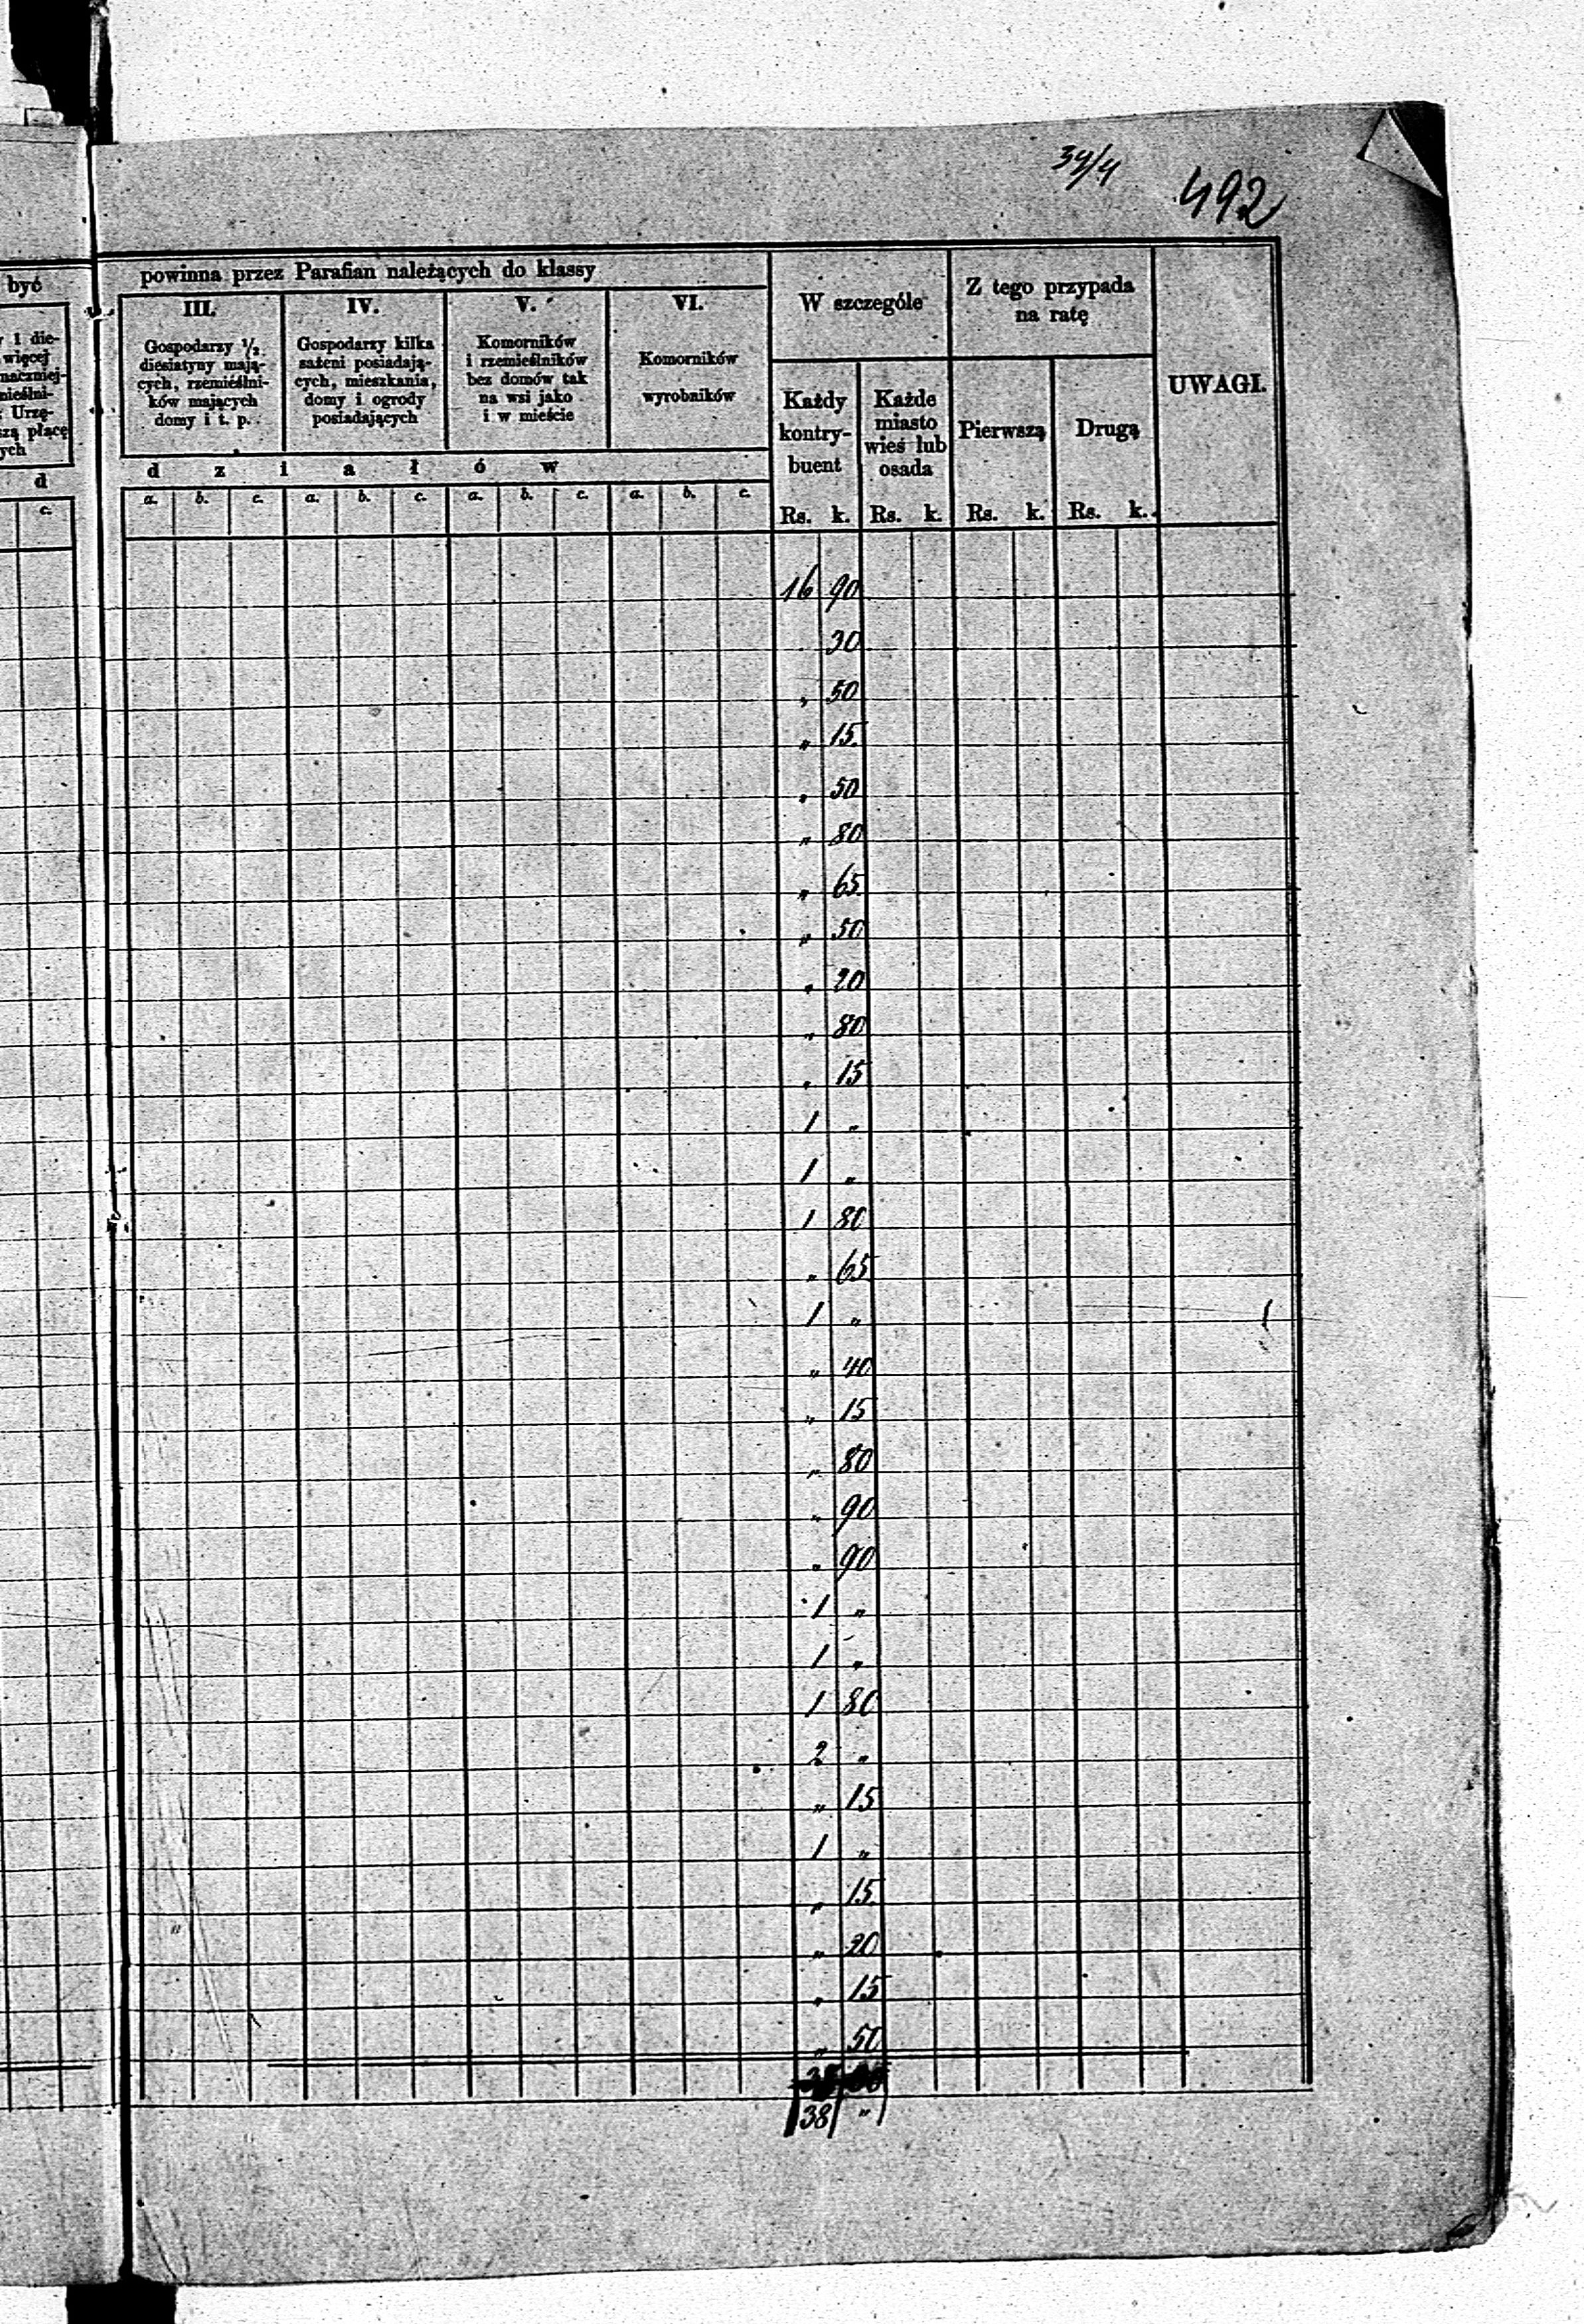 34/4
492
być
powinna przez Parafian należących do klassy
W szczególe
Z tego przypada
na ratę
UWAGI.
1 die-
więcej
naczniej-
mieślni-
Urzę-
szą płacę
ych
d
c.
III.
Gospodarzy ½
diesiatyny mają-
cych, rzemieślni-
ków mających
domy i t. p.
IV.
Gospodarzy kilka
sażeni posiadają-
cych, mieszkania,
domy i ogrody
posiadających
V.
Komorników
i rzemieślników
bez domów tak
na wsi jako
i w mieście
VI.
Komorników
wyrobników
d z i a ł ó w
a. b. c. a. b. c. a. b. c. a. b. c.
Każdy
kontry-
buent
Rs. k.
Każde
miasto
wieś lub
osada
Rs. k.
Pierwszą
Rs. k.
Drugą
Rs. k.
16 90
30
„ 50
„ 15
„ 50
„ 80
„ 65
„ 50
„ 20
„ 80
„ 15
1 „
1 „
1 80
„ 65
1 „
„ 40
„ 15
„ 80
„ 90
„ 90
1 „
1 „
1 80
2 „
„ 15
1 „
„ 15
„ 20
„ 15
„ 50
38 „